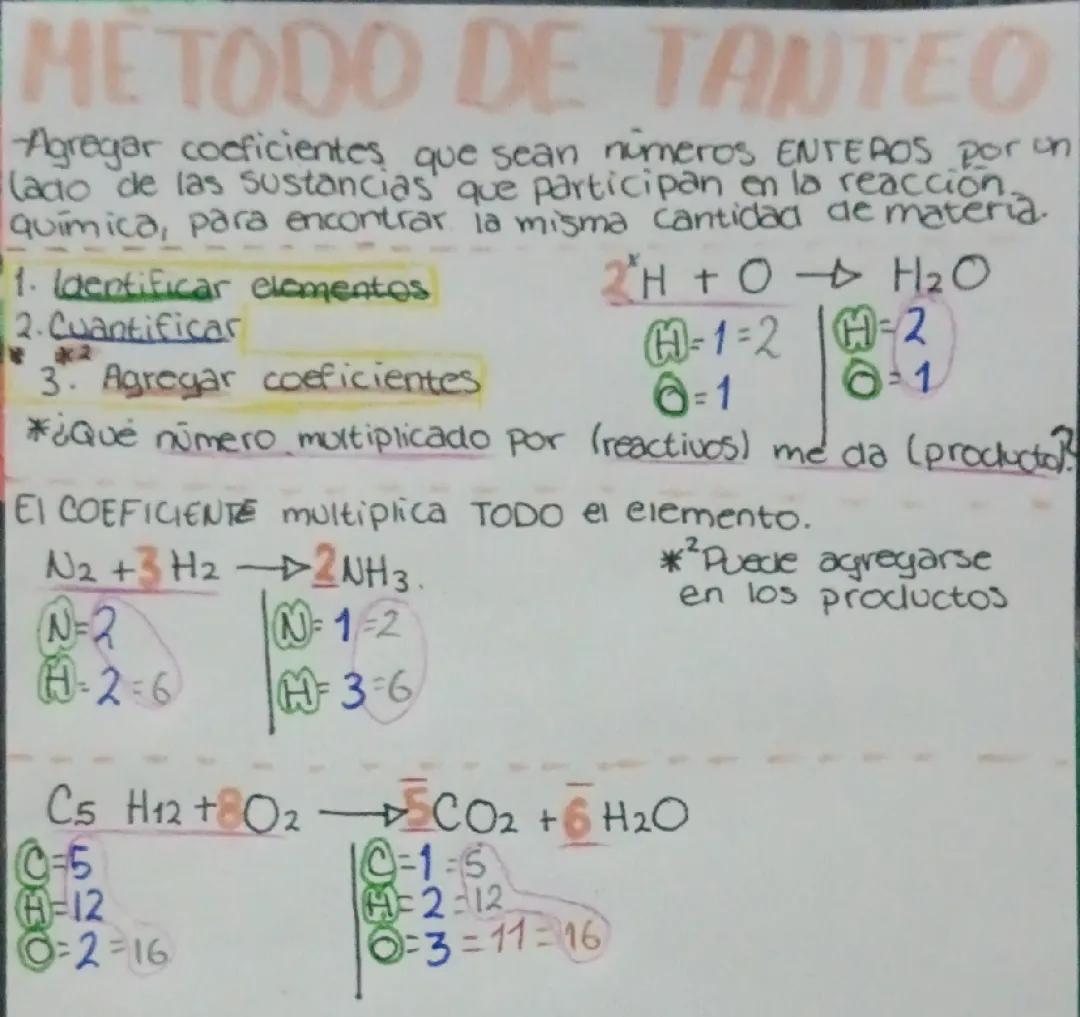 METODO DE TANTEO
-Agregar coeficientes que sean números ENTEROS por un
lado de las sustancias que participan en la reacción
química, para encontrar la misma cantidad de materia.
1. Identificar elementos
2. Cuantificar
* *2
3. Agregar coeficientes
2*H + O → H2O
H=1=2 | H=2
O=1 | O=1
*¿Qué número multiplicado por (reactivos) me da (producto)?
El COEFICIENTE multiplica TODO el elemento.
N2 + 3 H2 → 2 NH3.
N=2 | N=1=2
H=2=6 | H=3=6
*2 Puede agregarse
en los productos
C5 H12 + 8O2 → 5CO2 + 6 H2O
C=5 | C=1=5
H=12 | H=2=12
O=2=16 | O=3=11=16